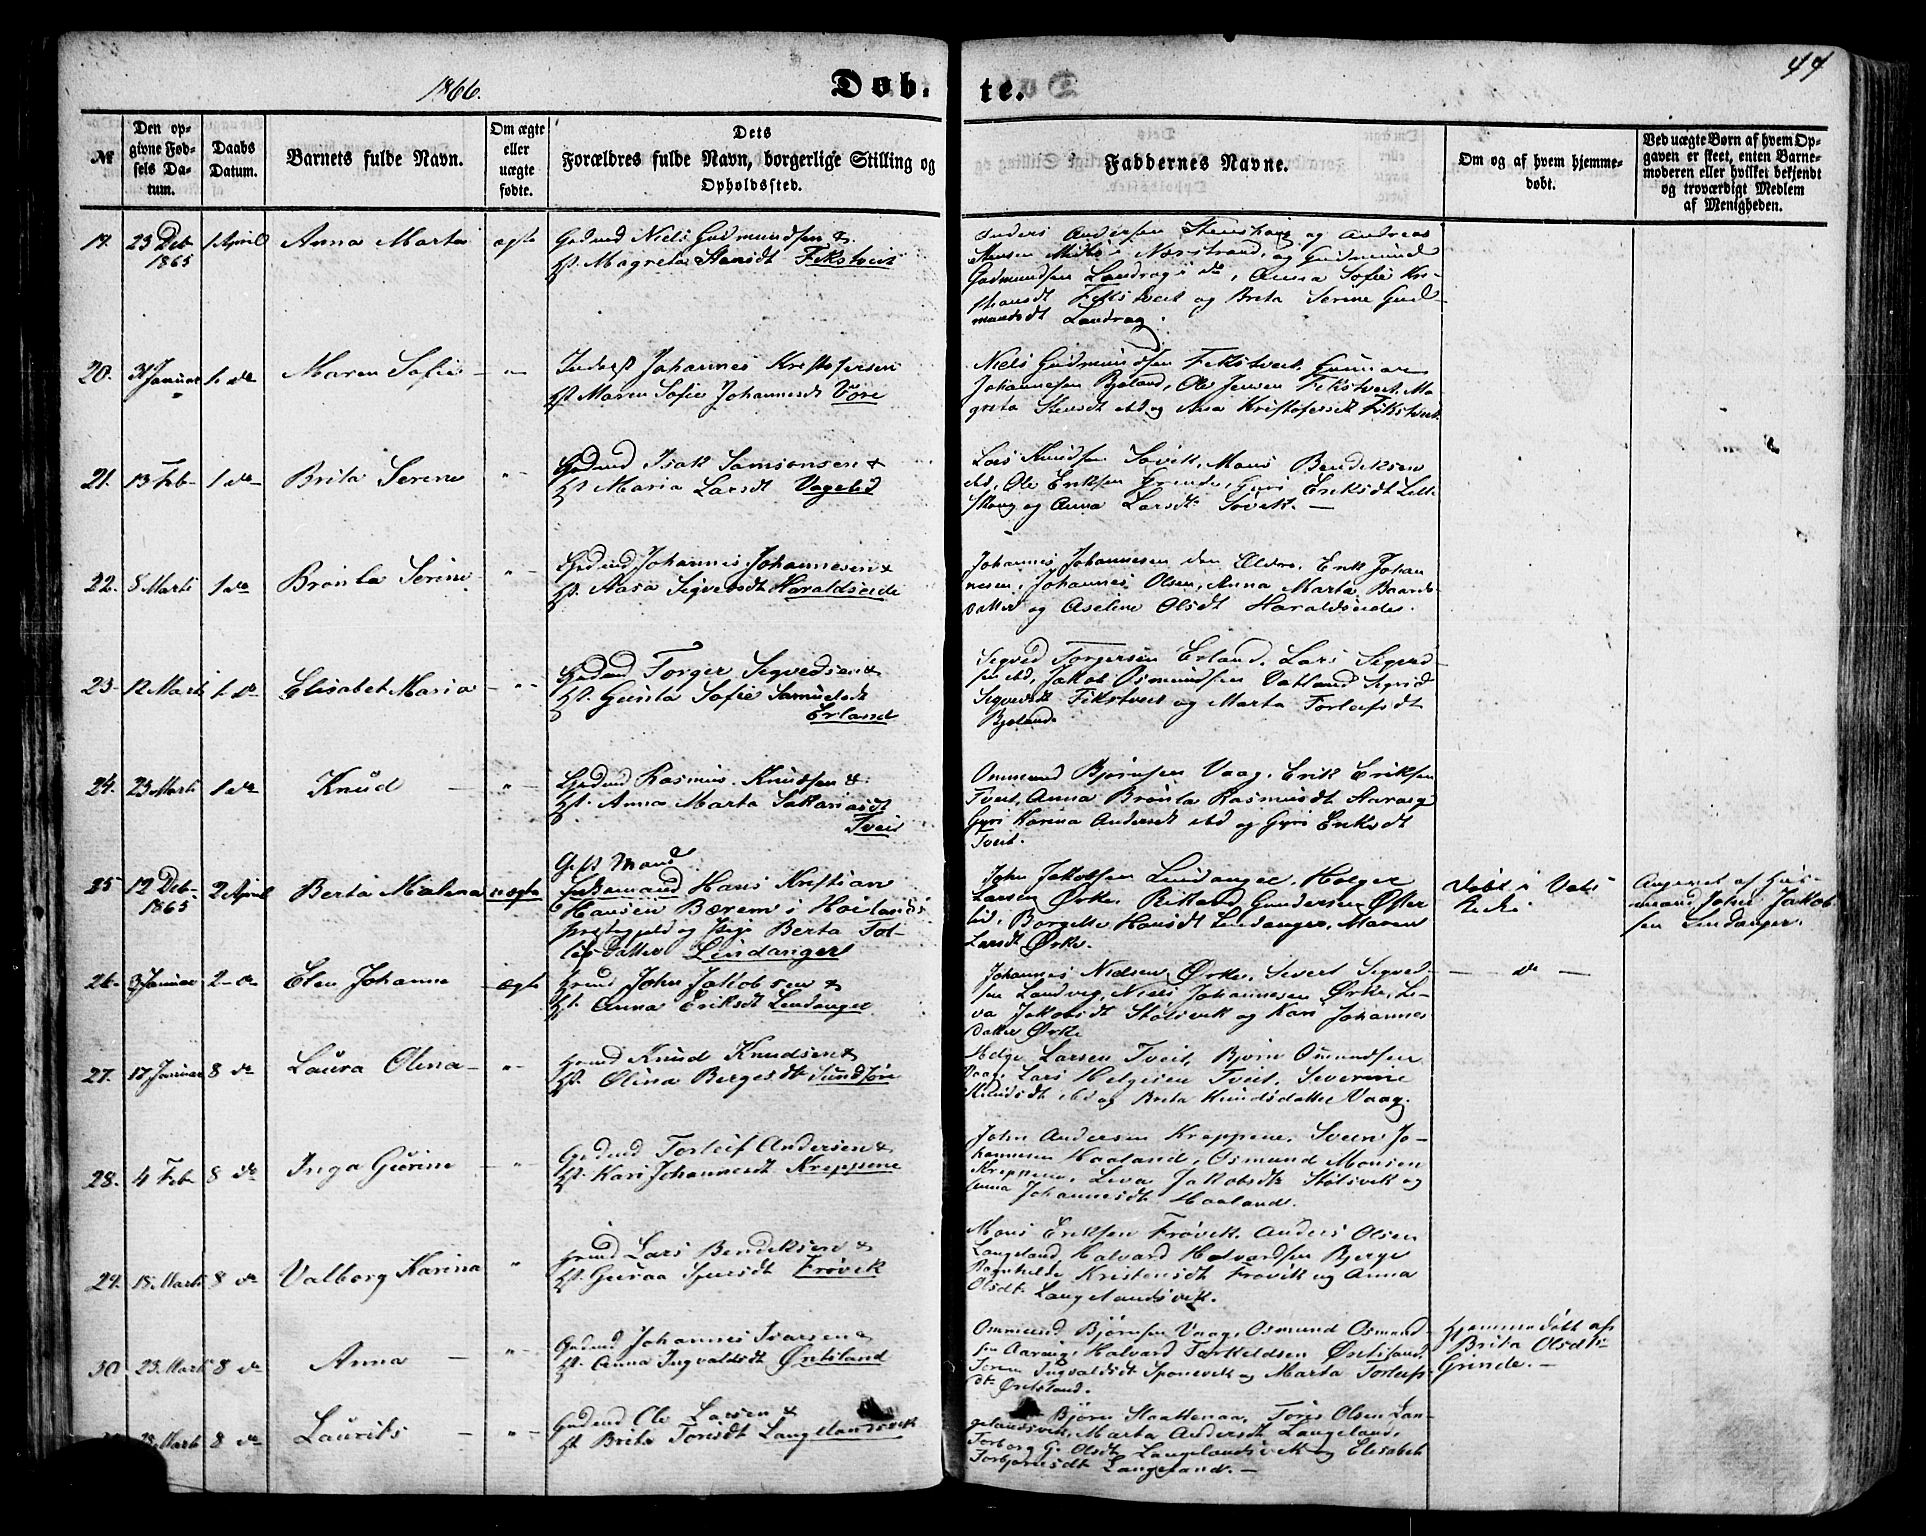 1866.
Døb-
te.
44
№
Den op-
givne Fød-
sels Da-
tum.
Daabs
Datum.
Barnets fulde Navn.
Om ægte
eller
uægte
fødte.
Dets
Forældres fulde Navn, borgerlige Stilling og
Opholdssted.
Faddernes Navne.
Om og af hvem hjemme-
døbt.
Ved uægte Børn af hvem Op-
gaven er skeet, enten Barne-
moderen eller hvilket bekjendt
og troværdigt Medlem
af Menigheden.
19. 23 Deb 1 April Anna Marta ægte Gdmd Niels Gudmundsen &
1865 Hst. Magreta Fikstveit
Anders Andersen og Andreas
Monsen i Norstrand, og Gudmund
Gudmundsen Landrag i do, Anna Sofie Kri-
Fikstveit og Brita Serine Gud-
mundsdt Landrag.
20. 31 Januar 1 do Maren Sofie - " Johannes Kristofersen
Hst Maren Sofie Johannesdt Vore
Niels Gudmundsen Fikstveit, Gunnar
Johannesen Bjeland, Ole Jensen Fikstveit, Ma-
greta ibd og Ana Kristofersdt Fikstveit.
21. 13 Feb- 1 do- Brita Serine - " - Gdmd Isak Samsonsen &
Hst Maria Larsdt Vageled
Lars Knudsen Søvik, Mons Bendiksen
ibd, Ole Eriksen Grinde, Guri Eriksdt Lill-
skog og Anna Larsdt Søvik. -
22. 8 Marts 1 do Brønla Serine - " - Gdmd Johannes Johannesen &
Hst. Aasa Sigversdt Haraldseide
Johannes Johannesen den Ældre, Erik Johan-
nesen, Johannes Olsen, Anna Marta Baards-
datter og Aseline Olsdt Haraldseide.
23- 12 Marts 1 do Elisabet Maria - " - Gdmd Torger Segvedsen &
Hst. Gunla Sofie Samuelsdt
Erland
Segved Torgersen Erland, Lars Segved-
sen ibd, Jakob Osmundsen Vatland Sigrid
Segvedsdt Fikstveit og Marta Torleifsdt
Bjeland.
24. 23 Marts 1 do Knud - " - Gdmd Rasmus Knudsen &
Hst. Anna Marta Sakariasdt
Tveit
Ommund Bjørnsen Vaag, Erik Eriksen
Tveit, Anna Brønla Rasmusdt Aarvig
Gyri Karina Andersdt ibd og Gyri Eriksdt
Tveit.
25 12 Deb- 2 April Berta Malena uægte Gift Mand
1865 Hans Kristian
Hansen Bærem i Høilands
Præstegjeld og Pige Berta Tol-
lefsdatter Lindanger
John Jakobsen Lindanger, Holger
Larsen Ørke, Rikard Gundersen Øster-
lid, Borgille Hansdt Lindanger, Maren
Larsdt Ørke.
Døbt i Vats
Kirke.
Angivet af Hus-
mand John Jakob-
sen Lindanger.
26. 3 Januar 2- do Elen Johanne - ægte Gmd John Jakobsen &
Hst. Anna Eriksdt Lindanger
Johannes Nielsen Ørke, Sivert Segved-
sen Landveg, Niels Johannesen Ørke, Li-
va Jakobsdt Stølsvik og Kari Johannes
datter Ørke
- do -
27. 17 Januar 8 do Laura Olina - " - Gmd Knud Knudsen &
Hst. Olina Bergesdt Sundføre
Helge Larsen Tveit, Bjørn Osmundsen
Vaag, Lars Helgesen Tveit, Severine
Knudsdt ibd og Brita Knudsdatter Vaag.
28. 4 Feb 8 do Inga Gurine - " Gdmd Torleif Andersen &
Hst. Kari Johannesdt Kreppene
John Andersen Kreppene, Sven Jo-
hannesen Haaland, Osmund Monsen
Kreppene, Liva Jakobsdt Stølsvik og
Anna Johannesdt Haaland.
29. 18. Marts 8 do Valborg Karina " Gmd Lars Bendiksen &
Hst. Guraa Frøvik
Mons Eriksen Frøvik, Anders Olsen
Langeland, Halvard Halvardsen Bjerge
Ragnhilde Kristensdt Frøvik og Anna
Olsdt Langelandsvik.
30. 23. Marts 8 do Anna - " - Gdmd Johannes Ivarsen &
Hst. Anna Ingvaldsdt Øntsland
Ommund Bjørnsen Vaag, Osmund Osmund-
sen Aarvig, Halvard Torkeldsen Øntsland,
Ingvaldsdt Sponevik og Marta Torleifs
dt. Øntsland.
Hjemmedøbt af
Brita Olsdt
Grinde. -
28. Marts 8 do Laurits - " - Gdmd Ole Larsen &
Hst Brita Torisdt Langelandsvik
Bjørn Slaattenaa, Tøres Olsen Lan-
gelandsvik, Marta Andersdt Langeland,
Torborg G. Olsdt Langelandsvik og Elisabet
Torbjørnsdt Langeland. -